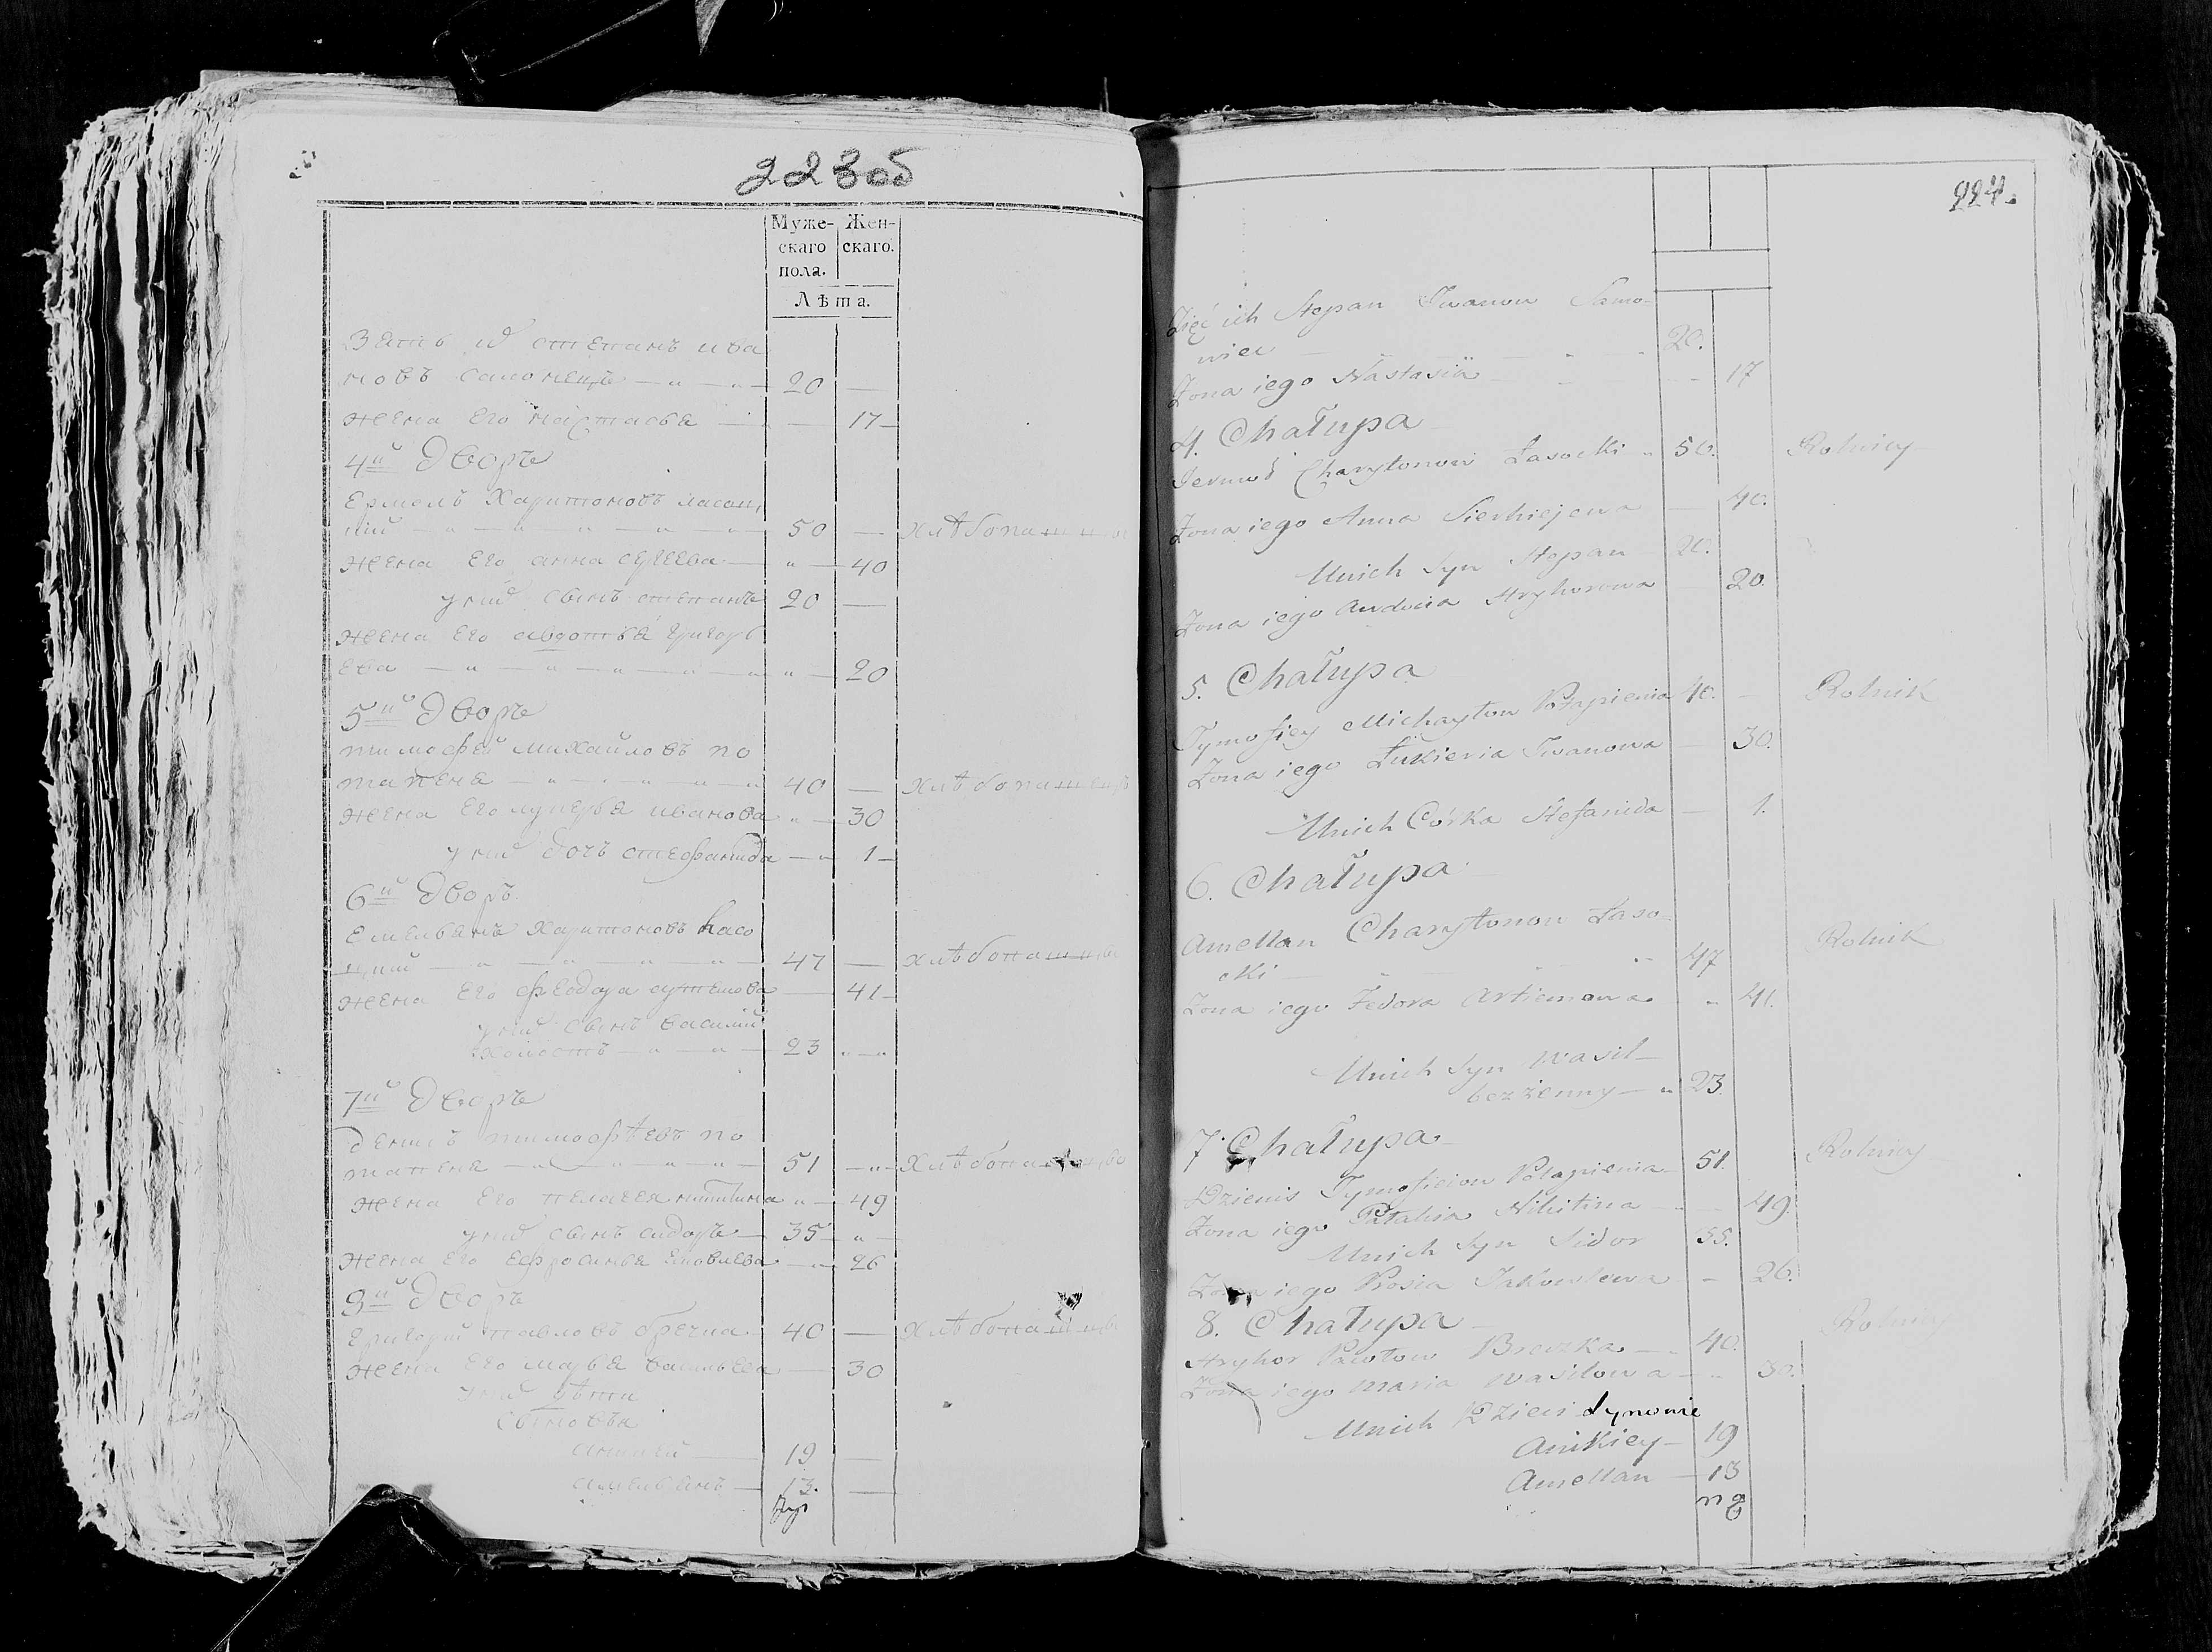 223об
Муже- Жен-
скаго скаго.
пола.
Лѣта.
Зять их степанъ ива
новъ самонецъ 20 —
жена его настасья — 17
4й дворъ
Ермолъ Харитоновъ ласоц
кий 50 — хлѣбопашцы
жена его анна 40
у них сынъ степанъ 20 —
жена его авдотья григорь
ева 20
5й дворъ
тимофей михайловъ по
тапеня 40 — хлѣбопашецъ
жена его лукерья иванова 30
у них дочь стефанида 1
6й дворъ
Емельянъ Харитоновъ ласо
цкий 47 — хлѣбопашцы
жена его феодора артемова 41
у них сынъ василий
холостъ 23
7й дворъ
денисъ тимофѣевъ по
тапеня 51 хлѣбопашцы
жена его пелагея никитина 49
у них сынъ сидоръ 35
жена его ефросинья яковлева 26
8й дворъ
григорий павловъ бречка 40 — хлѣбопашцы
жена его марья васильева 30
у них дѣти
сыновья
аникей 19 —
амельянъ 13. —
224.
Zięć ich Stepan Iwanow Samo-
niec 20.
Żona iego Nastasia 17
4. Chałupa
Jermoł Charytonow Łasocki 50. Rolnicy
Żona iego Anna Sierhiejewa 40.
Unich Syn Stepan 20.
Żona iego Awdocia Hryhorowa 20
5. Chałupa
Tymofiey Michayłow Potapienia 40. — Rolnik
Żona iego Łukieria Iwanowa 30.
Unich Córka Stefanida — 1.
6. Chałupa
Amellan Charytonow Łaso-
cki 47 Rolnik
Żona iego Fedora Artiemowa 41.
Unich Syn Wasil
bezżenny 23.
7. Chałupa
Dzienis Tymofieiow Potapienia 51. Rolnicy
Żona iego Pałahia Nikitina 49.
Unich Syn Sidor 35.
Żona iego Prosia Jakowlewa — 26.
8. Chałupa Rolnicy
Hryhor Pawłow Breczka 40.
Żona iego Maria Wasilowa 30.
Unich Dzieci Synowie
Anikiey 19
Amellan 13